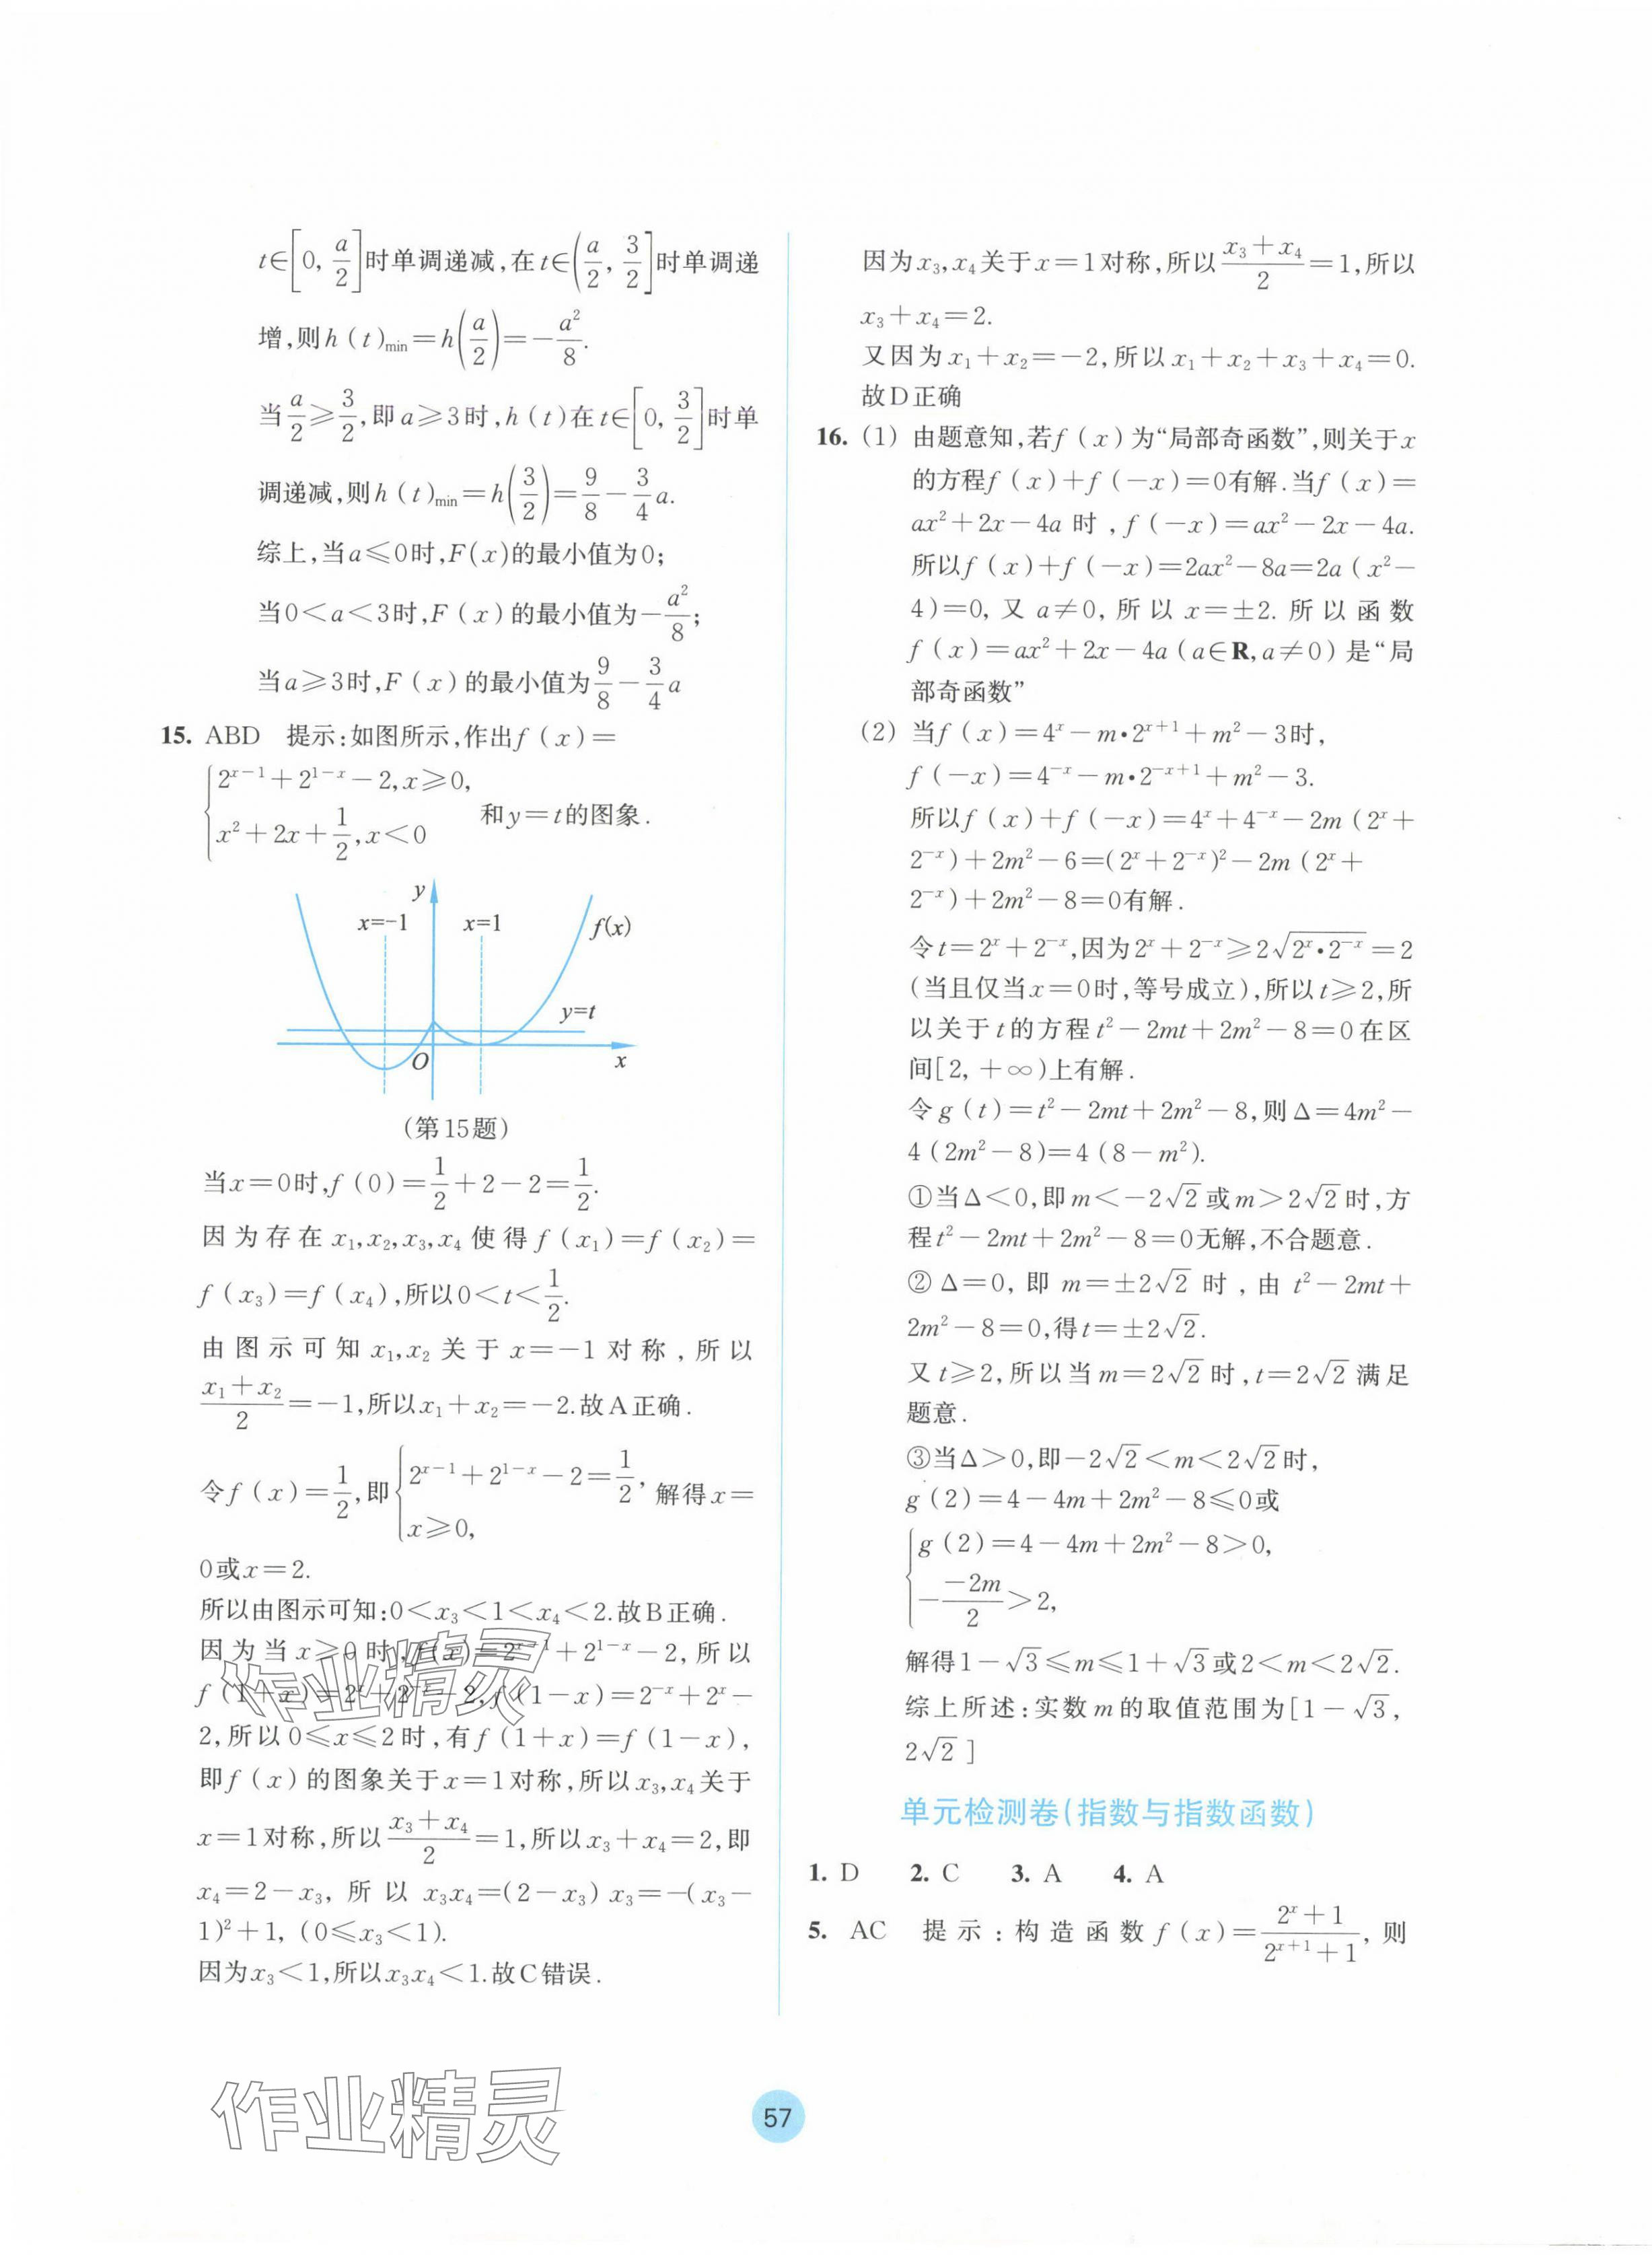 t∈[0, a/2]时单调递减,在t∈(a/2, 3/2]时单调递
增,则h(t)min=h(a/2)=-a²/8.
当a/2≥3/2,即a≥3时,h(t)在t∈[0, 3/2]时单
调递减,则h(t)min=h(3/2)=9/8-3/4a.
综上,当a≤0时,F(x)的最小值为0;
当0<a<3时,F(x)的最小值为-a²/8;
当a≥3时,F(x)的最小值为9/8-3/4a
15. ABD 提示:如图所示,作出f(x)=
{2^{x-1}+2^{1-x}-2,x≥0,
x²+2x+1/2,x<0 和y=t的图象.
y
x=-1 x=1 f(x)
y=t
O x
(第15题)
当x=0时,f(0)=1/2+2-2=1/2.
因为存在x₁,x₂,x₃,x₄使得f(x₁)=f(x₂)=
f(x₃)=f(x₄),所以0<t<1/2.
由图示可知x₁,x₂关于x=-1对称,所以
(x₁+x₂)/2=-1,所以x₁+x₂=-2.故A正确.
令f(x)=1/2,即{2^{x-1}+2^{1-x}-2=1/2, x≥0, 解得x=
0或x=2.
所以由图示可知:0<x₃<1<x₄<2.故B正确.
因为当x≥0时,f(x)=2^{x-1}+2^{1-x}-2,所以
f(1+x)=2^x+2^{-x}-2,f(1-x)=2^{-x}+2^x-
2,所以0≤x≤2时,有f(1+x)=f(1-x),
即f(x)的图象关于x=1对称,所以x₃,x₄关于
x=1对称,所以(x₃+x₄)/2=1,所以x₃+x₄=2,即
x₄=2-x₃,所以x₃x₄=(2-x₃)x₃=-(x₃-
1)²+1,(0≤x₃<1).
因为x₃<1,所以x₃x₄<1.故C错误.
因为x₃,x₄关于x=1对称,所以(x₃+x₄)/2=1,所以
x₃+x₄=2.
又因为x₁+x₂=-2,所以x₁+x₂+x₃+x₄=0.
故D正确
16. (1) 由题意知,若f(x)为“局部奇函数”,则关于x
的方程f(x)+f(-x)=0有解.当f(x)=
ax²+2x-4a时,f(-x)=ax²-2x-4a.
所以f(x)+f(-x)=2ax²-8a=2a(x²-
4)=0,又a≠0,所以x=±2.所以函数
f(x)=ax²+2x-4a(a∈R,a≠0)是“局
部奇函数”
(2) 当f(x)=4^x-m·2^{x+1}+m²-3时,
f(-x)=4^{-x}-m·2^{-x+1}+m²-3.
所以f(x)+f(-x)=4^x+4^{-x}-2m(2^x+
2^{-x})+2m²-6=(2^x+2^{-x})²-2m(2^x+
2^{-x})+2m²-8=0有解.
令t=2^x+2^{-x},因为2^x+2^{-x}≥2√(2^x·2^{-x})=2
(当且仅当x=0时,等号成立),所以t≥2,所
以关于t的方程t²-2mt+2m²-8=0在区
间[2,+∞)上有解.
令g(t)=t²-2mt+2m²-8,则Δ=4m²-
4(2m²-8)=4(8-m²).
①当Δ<0,即m<-2√2或m>2√2时,方
程t²-2mt+2m²-8=0无解,不合题意.
②Δ=0,即m=±2√2时,由t²-2mt+
2m²-8=0,得t=±2√2.
又t≥2,所以当m=2√2时,t=2√2满足
题意.
③当Δ>0,即-2√2<m<2√2时,
g(2)=4-4m+2m²-8≤0或
{g(2)=4-4m+2m²-8>0,
-(-2m)/2>2,
解得1-√3≤m≤1+√3或2<m<2√2.
综上所述:实数m的取值范围为[1-√3,
2√2]
单元检测卷(指数与指数函数)
1. D 2. C 3. A 4. A
5. AC 提示:构造函数f(x)=(2^x+1)/(2^{x+1}+1),则
作业精灵
作业精灵
57